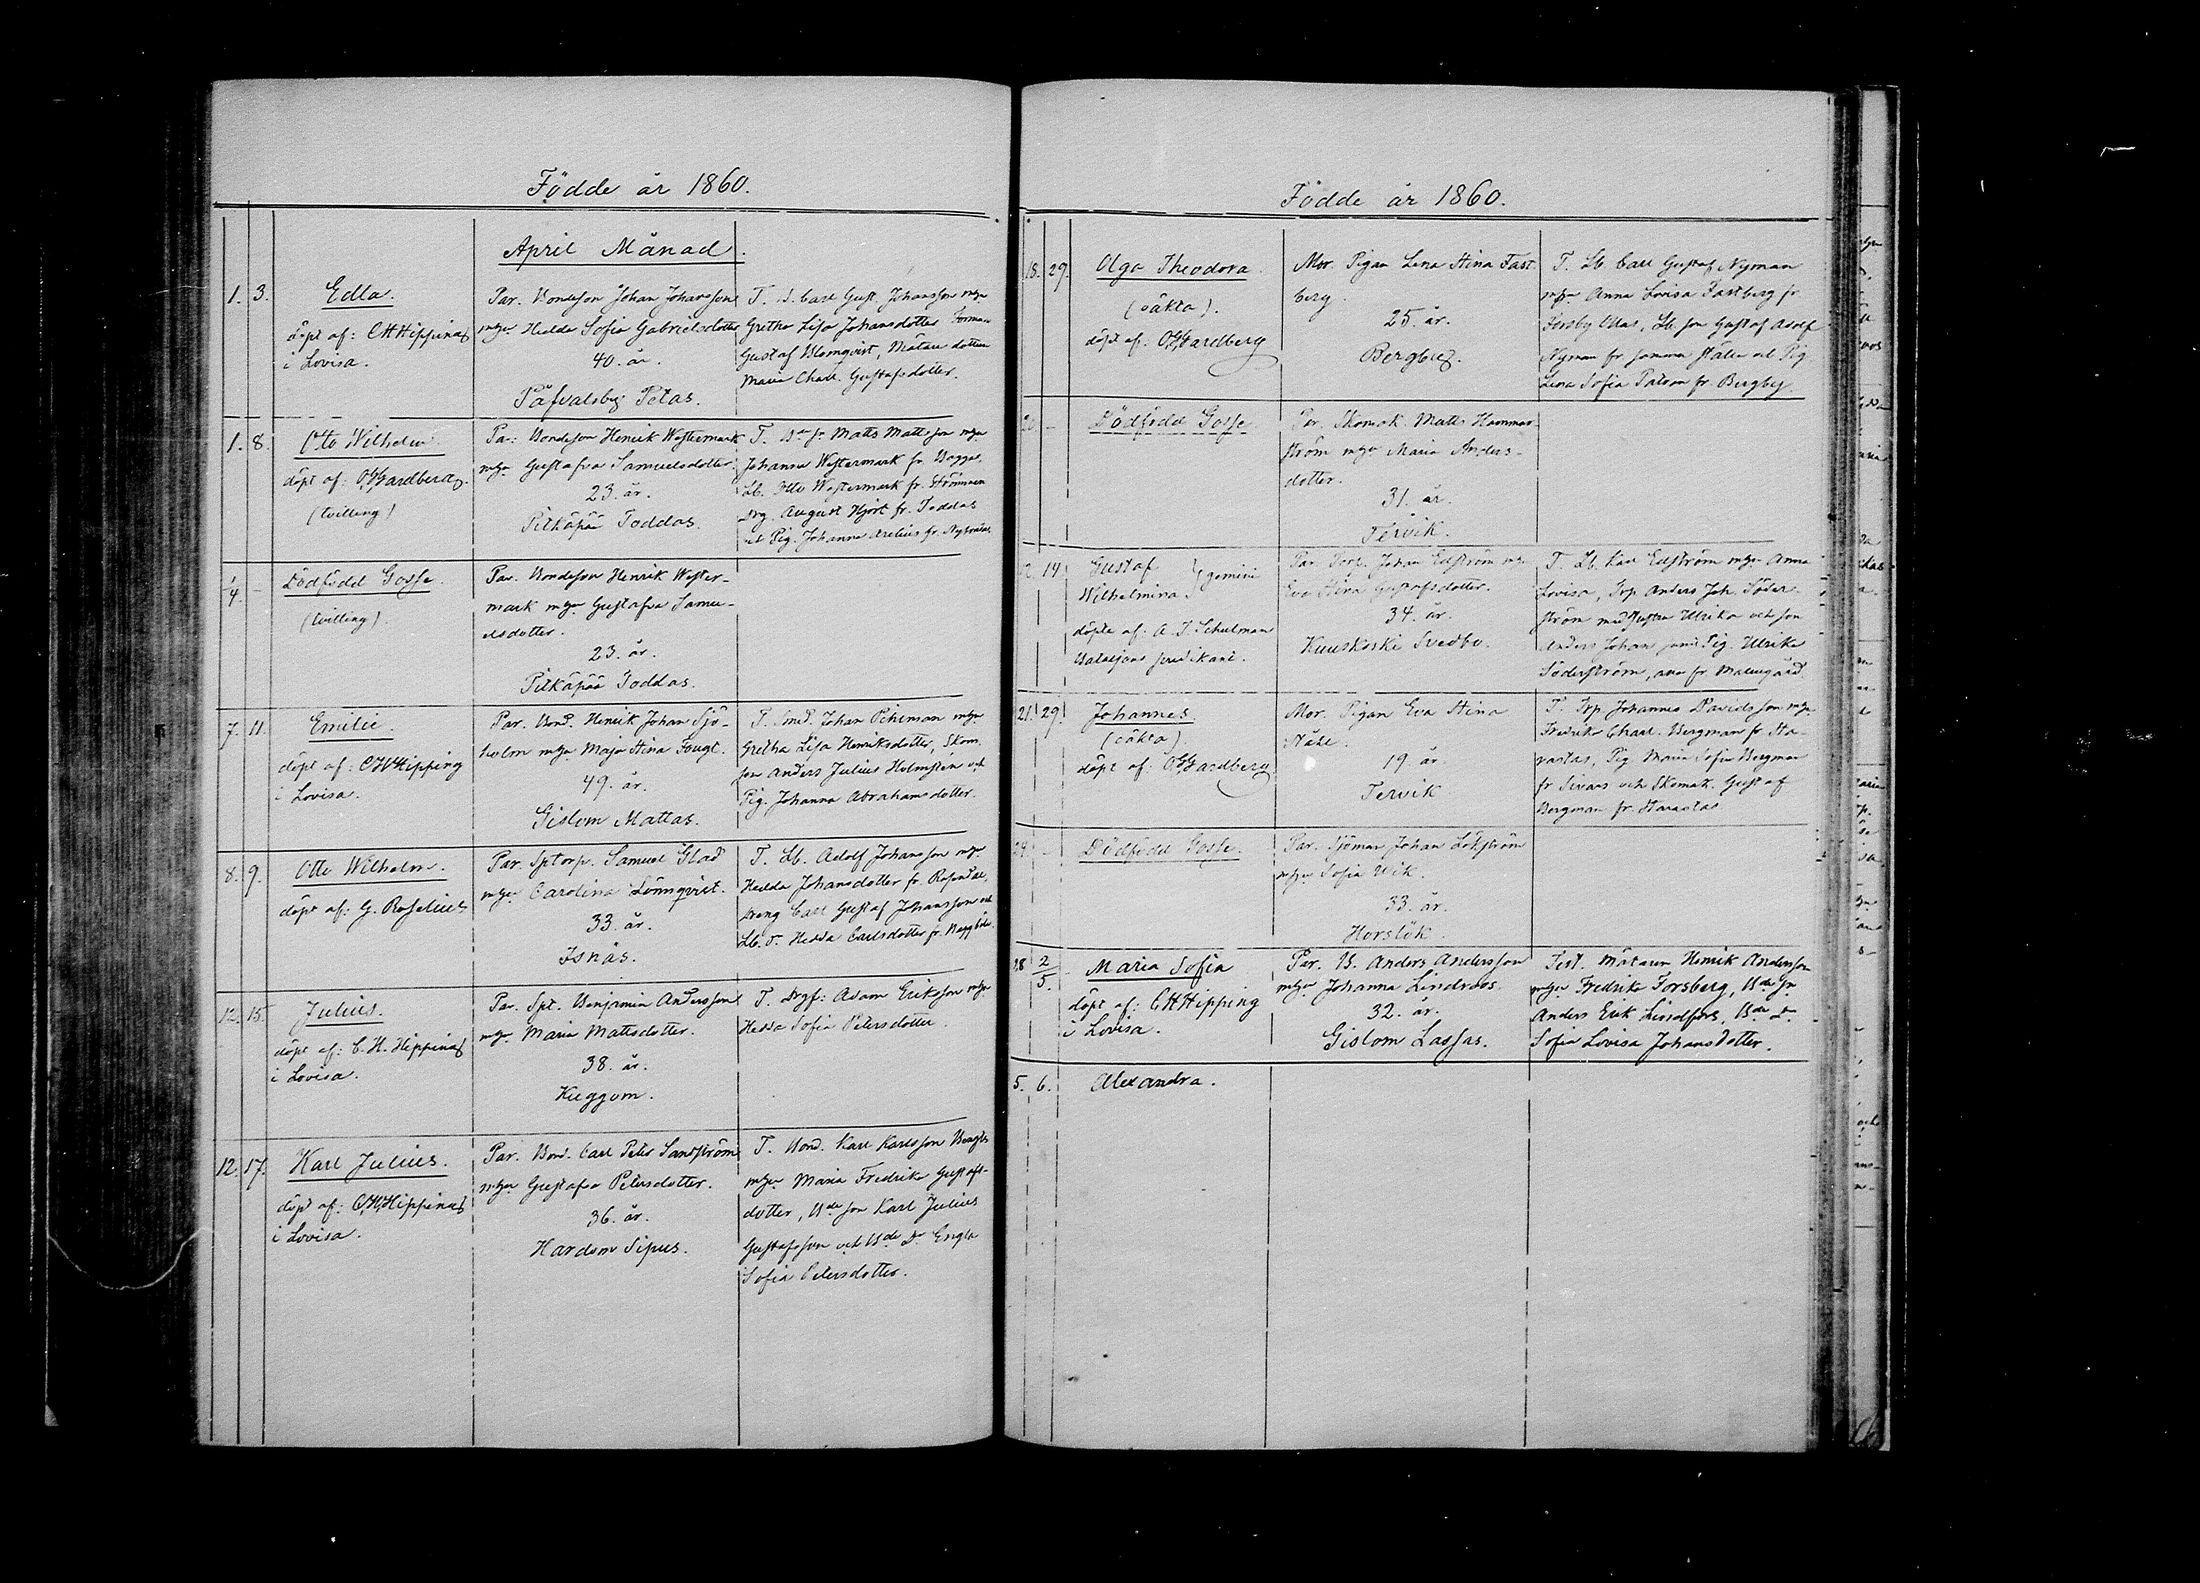 Födde år 1860.
April Månad.
1. 3. Edla.
döpt af: CHHipping
i Lovisa.
Par. Bondeson Johan Johansson
mgn Hedda Sofia Gabrielsdotter
40. år.
Påfvalsby Petas.
T. B. Carl Gust. Johansson mgn
Gretha Lisa Johansdotter Torman
Gustaf Blomqvist, Mätare dotter
Maria Charl. Gustafsdotter.
1. 8. Otto Wilhelm
döpt af: OWardberg.
(tvilling)
Par: Bondeson Henrik Westermark
mgn Gustafva Samuelsdotter.
23. år.
Pitkäpää Toddas.
T. Bde sn Matts Mattsson mgn
Johanna Westermark fr. Bagge
Lb. Otto Westermark fr. Strömmen
Drg. August Hjort fr. Toddas
och Pig. Johanna
4. - Dödfödd Gosse.
(tvilling).
Par. Bondeson Henrik Wester-
mark mgn Gustafva Samu-
elsdotter.
23. år.
Pitkäpää Toddas.
7. 11. Emilie.
döpt af: CHHipping
i Lovisa.
Par. Bond. Henrik Johan Sjö-
holm mgn Maja Stina Fougt.
49. år.
Gislom Mattas.
T. Smed. Johan Pihlman mgn
Gretha Lisa Henriksdotter, Skom.
son Anders Julius Holmsten och
Pig. Johanna Abrahamsdotter.
8. 9. Otto Wilhelm.
döpt af: G. Roselius
Par. Sptorp. Samuel Glad
mgn Carolina Lönnqvist.
33. år.
Isnäs.
T. Lb. Adolf Johansson mgn
Hedda Johansdotter fr. Rosendal,
Dreng Carl Gustaf Johansson och
Lb. D. Hedda Carlsdotter fr.
12. 15. Julius.
döpt af: C. H. Hipping
i Lovisa.
Par. Spt. Benjamin Andersson
mgn Maria Mattsdotter.
38. år.
Kuggom.
T. Drgf: Adam Eriksson mgn
Hedda Sofia Petersdotter.
12. 17. Karl Julius.
döpt af: CHHipping
i Lovisa.
Par. Bond. Carl Peter Sandström
mgn Gustafva Petersdotter.
36. år.
Hardom Sipus.
T. Bond. Karl Karlsson Bengts
mgn Maria Fredrika Gustafs-
dotter, Bde son Karl Julius
Gustafsson och Bde D. Engla
Sofia Petersdotter.
Födde år 1860.
18. 29. Olga Theodora.
(oäkta).
döpt af. OWardberg
Mor. Pigan Lena Stina Fast
berg.
25. år.
Bergby.
T. Lb. Carl Gustaf Nyman
mgn Anna Lovisa Fastberg fr
Forsby Ollas, Lb. son Gustaf Adolf
Nyman fr samma ställe och Pig
Lena Sofia fr. Bergby.
20 - Dödfödd Gosse
Par. Skomak. Matts Hammar
ström mgn Maria Anders-
dotter.
31. år.
Tervik.
12. 14. Gustaf
Wilhelmina } gemini
döpte af. A. F. Schulman
Bataljons predikant.
Par. Torp. Johan Edström mgn
Eva Stina Gustafsdotter.
34. år.
Kuuskoski Svedbo.
T. Lb. Karl Edström mgn Anna
Lovisa, Trp Anders Joh. Söder-
ström med hustru Ulrika och son
Anders Johan samt Pig. Ulrika
Söderström, alla fr Malmgård
21. 29. Johannes
(oäkta)
döpt af: OWardberg
Mor. Pigan Eva Stina
Ståhl.
19. år.
Tervik
T. Trp Johannes Davidsson mgn
Fredrika Charl. Bergman fr Ha-
rastas, Pig Maria Sofia Bergman
fr Sivars och Skomak. Gustaf
Bergman fr Harastas
24. - Dödfödd Gosse.
Par. Sjöman Johan Lökström
mgn Sofia Wik.
33. år.
Horslök.
28 2/5. Maria Sofia
döpt af: CHHipping
i Lovisa.
Par. B. Anders Andersson
mgn Johanna Lindroos.
32. år.
Gislom Lassas.
Test. Mätaren Henrik Andersson
mgn Fredrika Forsberg, Bde sn
Anders Erik Lindfors, Bde D.
Sofia Lovisa Johansdotter.
5. 6. Alexandra.